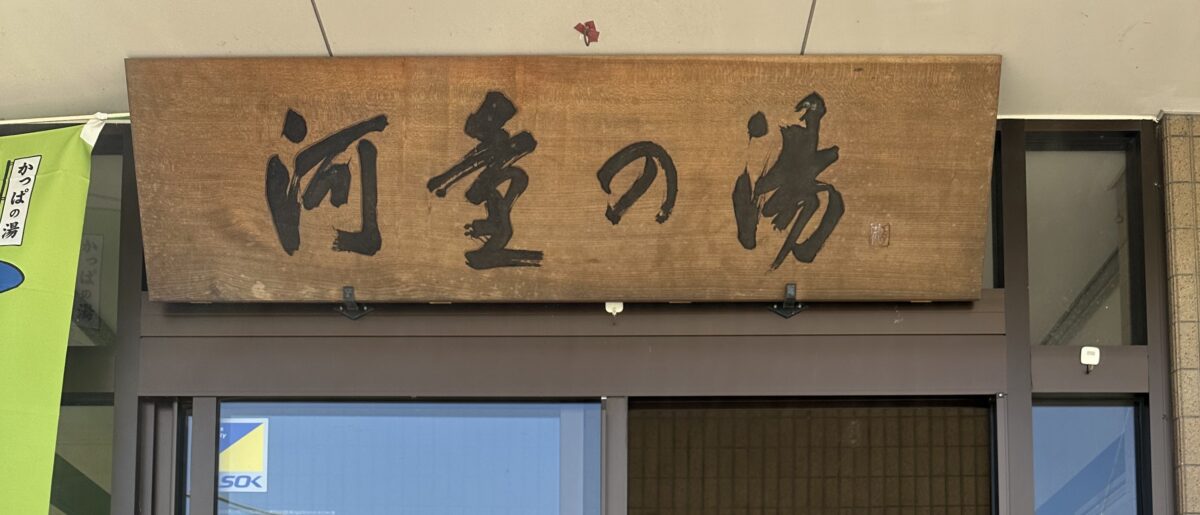 河童の湯
かっぱの湯
かっぱの湯
SOK